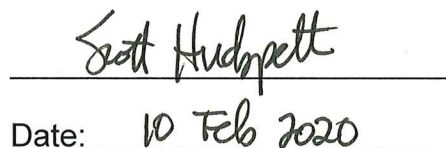 Scott Hudspett
Date: 10 Feb 2020